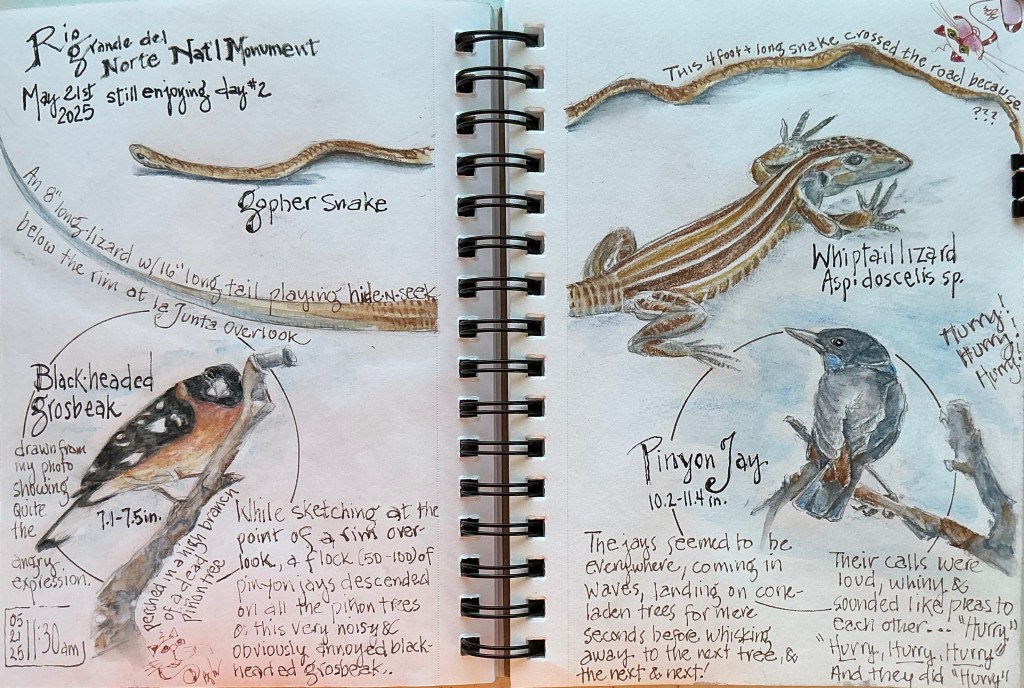 Rio grande del
Norte Nat'l Monument
May 21st still enjoying day #2
2025
gopher snake
An 8" long lizard w/16" long tail playing hide-N-seek
below the rim at La Junta Overlook
Black-headed
grosbeak
drawn from
my photo
showing
quite
the
angry
expression.
7.1-7.5in.
perched in a high branch
of a dead
piñon tree
05
21
25
11:30am
While sketching at the
point of a rim over-
look, a flock (50-100) of
pinyon jays descended
on all the piñon trees
& this very noisy &
obviously annoyed black-
headed grosbeak..
This 4 foot + long snake crossed the road because
???
Whiptail lizard
Aspidoscelis sp.
Hurry!
Hurry!
Hurry!
Pinyon Jay
10.2-11.4 in.
The jays seemed to be
everywhere, coming in
waves, landing on cone-
laden trees for mere
seconds before whisking
away to the next tree, &
the next & next!
Their calls were
loud, whiny &
sounded like pleas to
each other... "Hurry"
"Hurry, Hurry, Hurry"
And they did "Hurry"